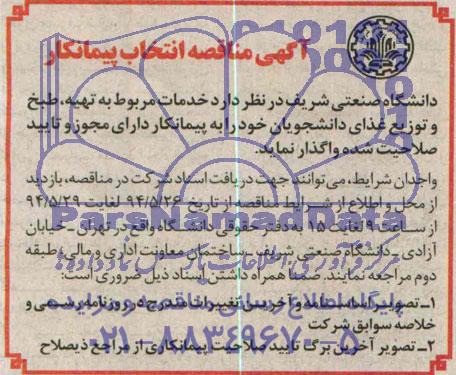 آگهی مناقصه انتخاب پیمانکار
دانشگاه صنعتی شریف در نظر دارد خدمات مربوط به تهیه، طبخ
و توزیع غذای دانشجویان خود را به پیمانکار دارای مجوز و تایید
صلاحیت شده واگذار نماید.
واجدان شرایط، می‌توانند جهت دریافت اسناد شرکت در مناقصه، بازدید
از محل و اطلاع از شرایط مناقصه از تاریخ ۹۴/۵/۲۶ لغایت ۹۴/۵/۲۹
از ساعت ۹ لغایت ۱۵ به دفتر حقوقی دانشگاه واقع در تهران - خیابان
آزادی - دانشگاه صنعتی شریف - ساختمان معاونت اداری و مالی، طبقه
دوم مراجعه نمایند. ضمنا همراه داشتن اسناد ذیل ضروری است:
۱- تصویر اساسنامه و آخرین تغییرات مندرج در روزنامه رسمی و
خلاصه سوابق شرکت
۲- تصویر آخرین برگ تایید صلاحیت پیمانکاری از مراجع ذیصلاح
ParsNamadData
پایگاه اطلاع رسانی مناقصه و مزایده
۰۲۱-۸۸۳۴۹۶۷۰-۵